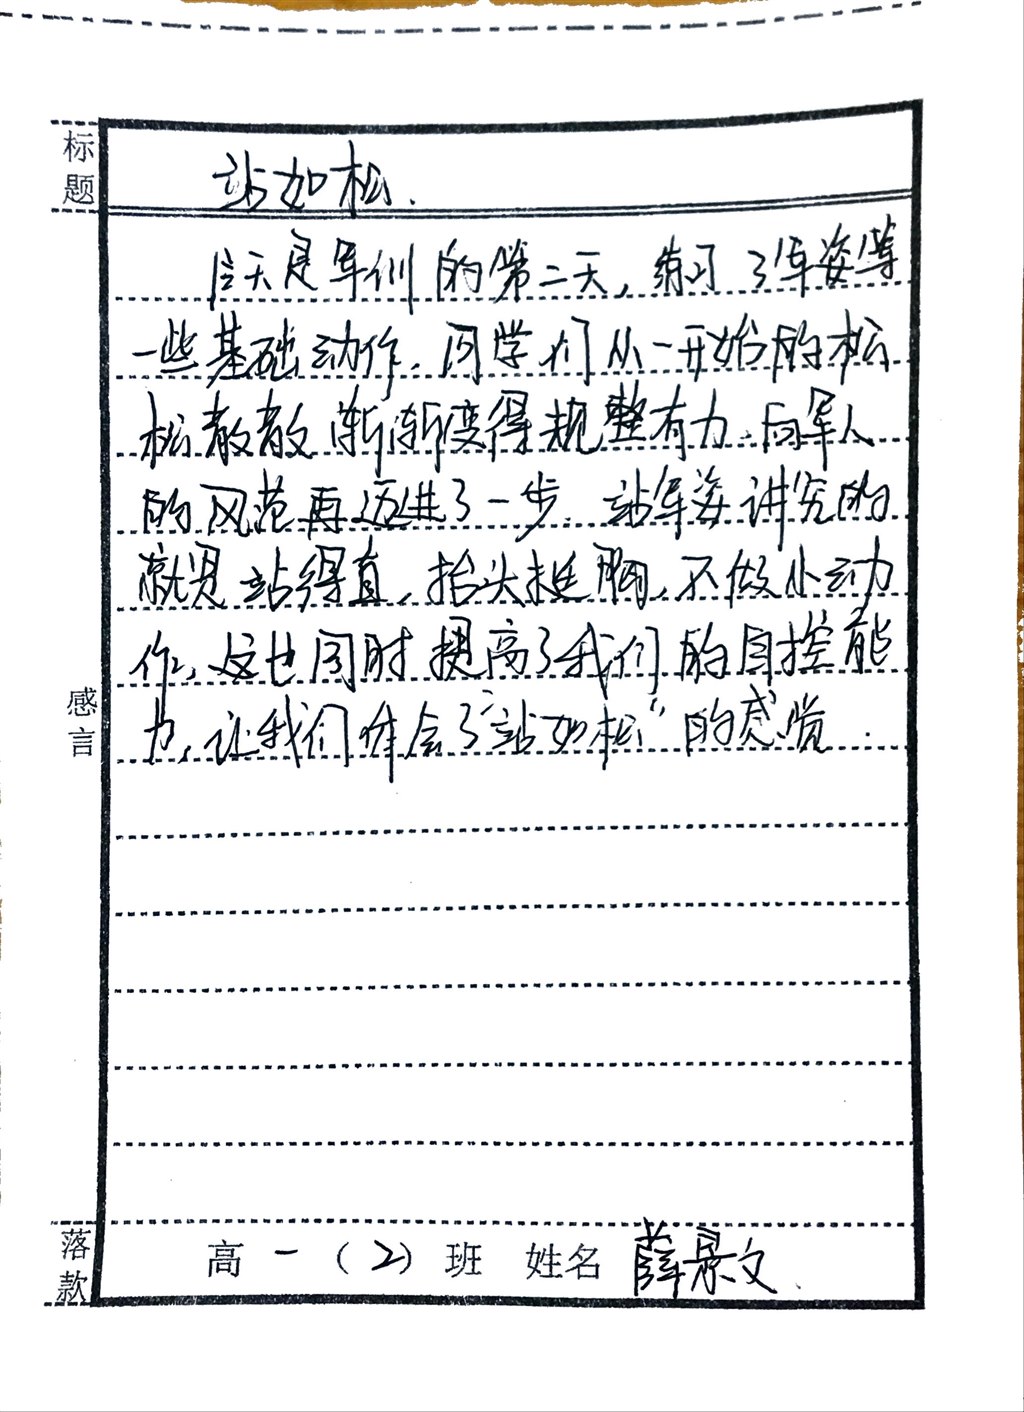 标题
站如松.
今天是军训的第二天，练习了军姿等
一些基础动作，同学们从一开始的松
松散散渐渐变得规整有力，向军人
的风范再迈进了一步。站军姿讲究的
就是站得直，抬头挺胸，不做小动
作，这也同时提高了我们的自控能
力，让我们体会了“站如松”的感觉.
感言
落款
高一（2）班 姓名 薛景文.